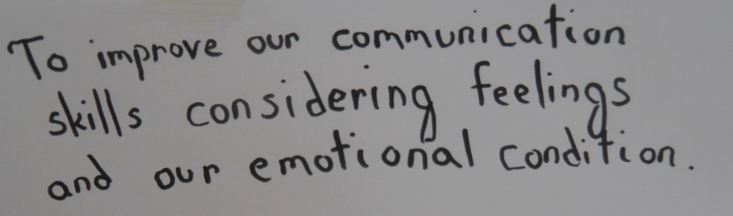 To improve our communication
skills considering feelings
and our emotional condition.